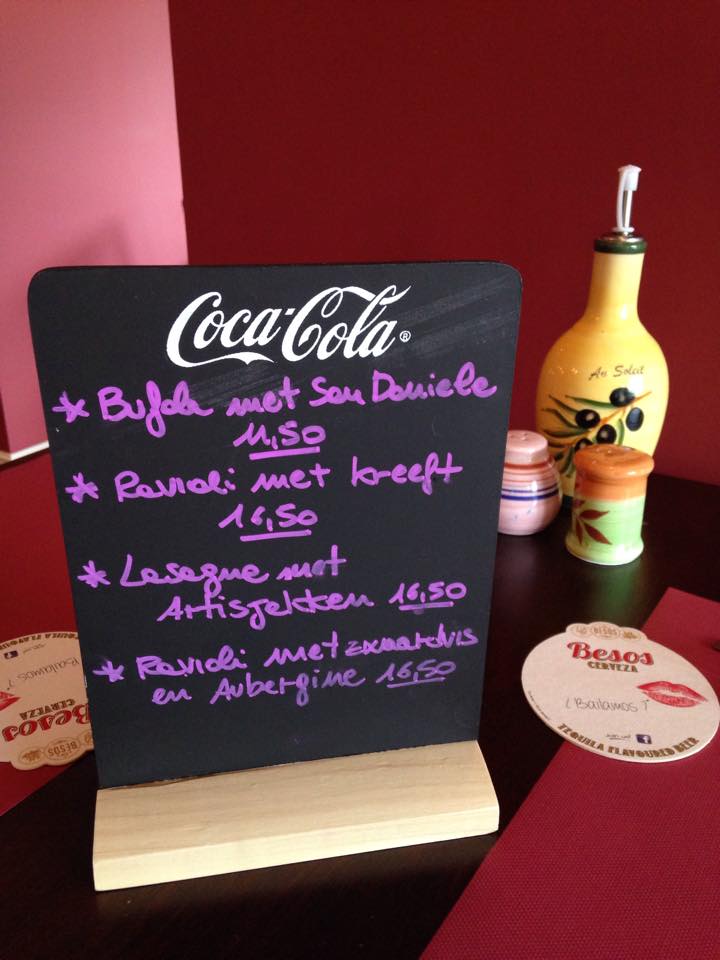 Coca-Cola®
* Bufala met San Daniele
11,50
* Ravioli met kreeft
16,50
* Lasagne met
Artisjokken 16,50
* Ravioli met zwaardvis
en Aubergine 16,50
Au Soleil
BESOS
Besos
CERVEZA
¿Bailamos?
TEQUILA FLAVOURED BEER
BESOS
Besos
CERVEZA
¿Bailamos?
TEQUILA FLAVOURED BEER